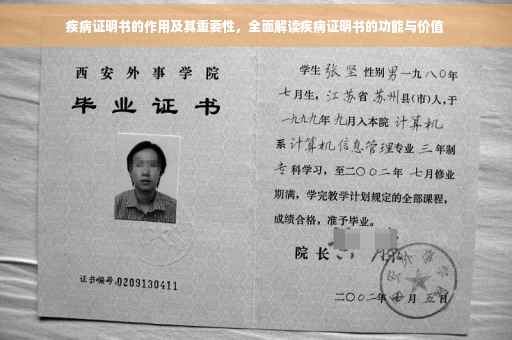 疾病证明书的作用及其重要性，全面解读疾病证明书的功能与价值
西安外事学院
毕业证书
证书编号:0209130411
学生 张坚 性别男 一九八〇年
七月生，江苏省 苏州县(市)人，于
一九九九年 九月入本院 计算机
系 计算机信息管理专业 三 年制
专科学习，至二〇〇二年 七月修业
期满，学完教学计划规定的全部课程，
成绩合格，准予毕业。
院长
二〇〇二年 月 五日